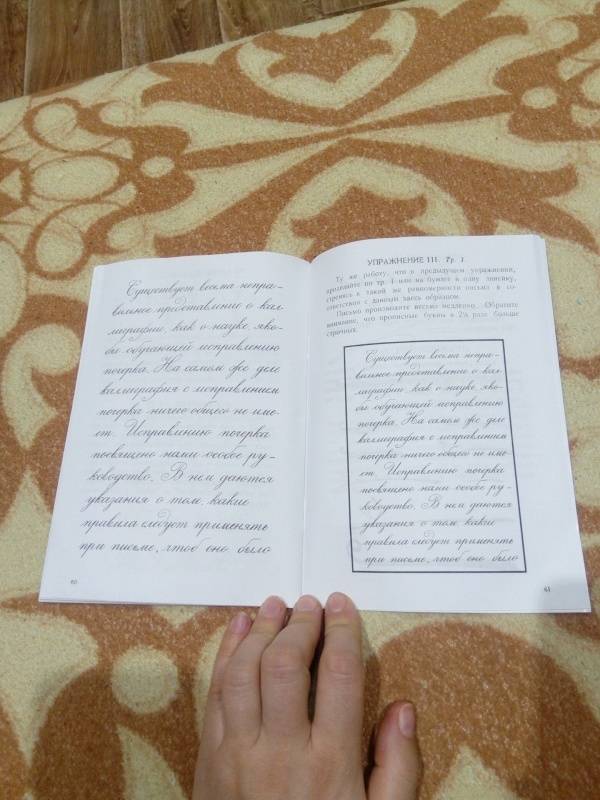 Существует весьма непра-
вильное представление о кал-
лиграфии, как о науке яко-
бы обучающей исправлению
почерка. На самом же деле
каллиграфия с исправлением
почерка ничего общего не име-
ет. Исправлению почерка
посвящено нами особое ру-
ководство. В нем даются
указания о том, какие
правила следует применять
при письме, чтоб оно было
60
УПРАЖНЕНИЕ III. Тр. 1.
Ту же работу, что в предыдущем упражнении,
проделайте по тр. 1 или на бумаге в одну линейку,
стремясь к такой же равномерности письма в со-
ответствии с данным здесь образцом.
Письмо производите весьма медленно. Обратите
внимание, что прописные буквы в 2½ раза больше
строчных.
Существует весьма непра-
вильное представление о кал-
лиграфии, как о науке яко-
бы обучающей исправлению
почерка. На самом же деле
каллиграфия с исправлением
почерка ничего общего не име-
ет. Исправлению почерка
посвящено нами особое ру-
ководство. В нем даются
указания о том, какие
правила следует применять
при письме, чтоб оно было
61